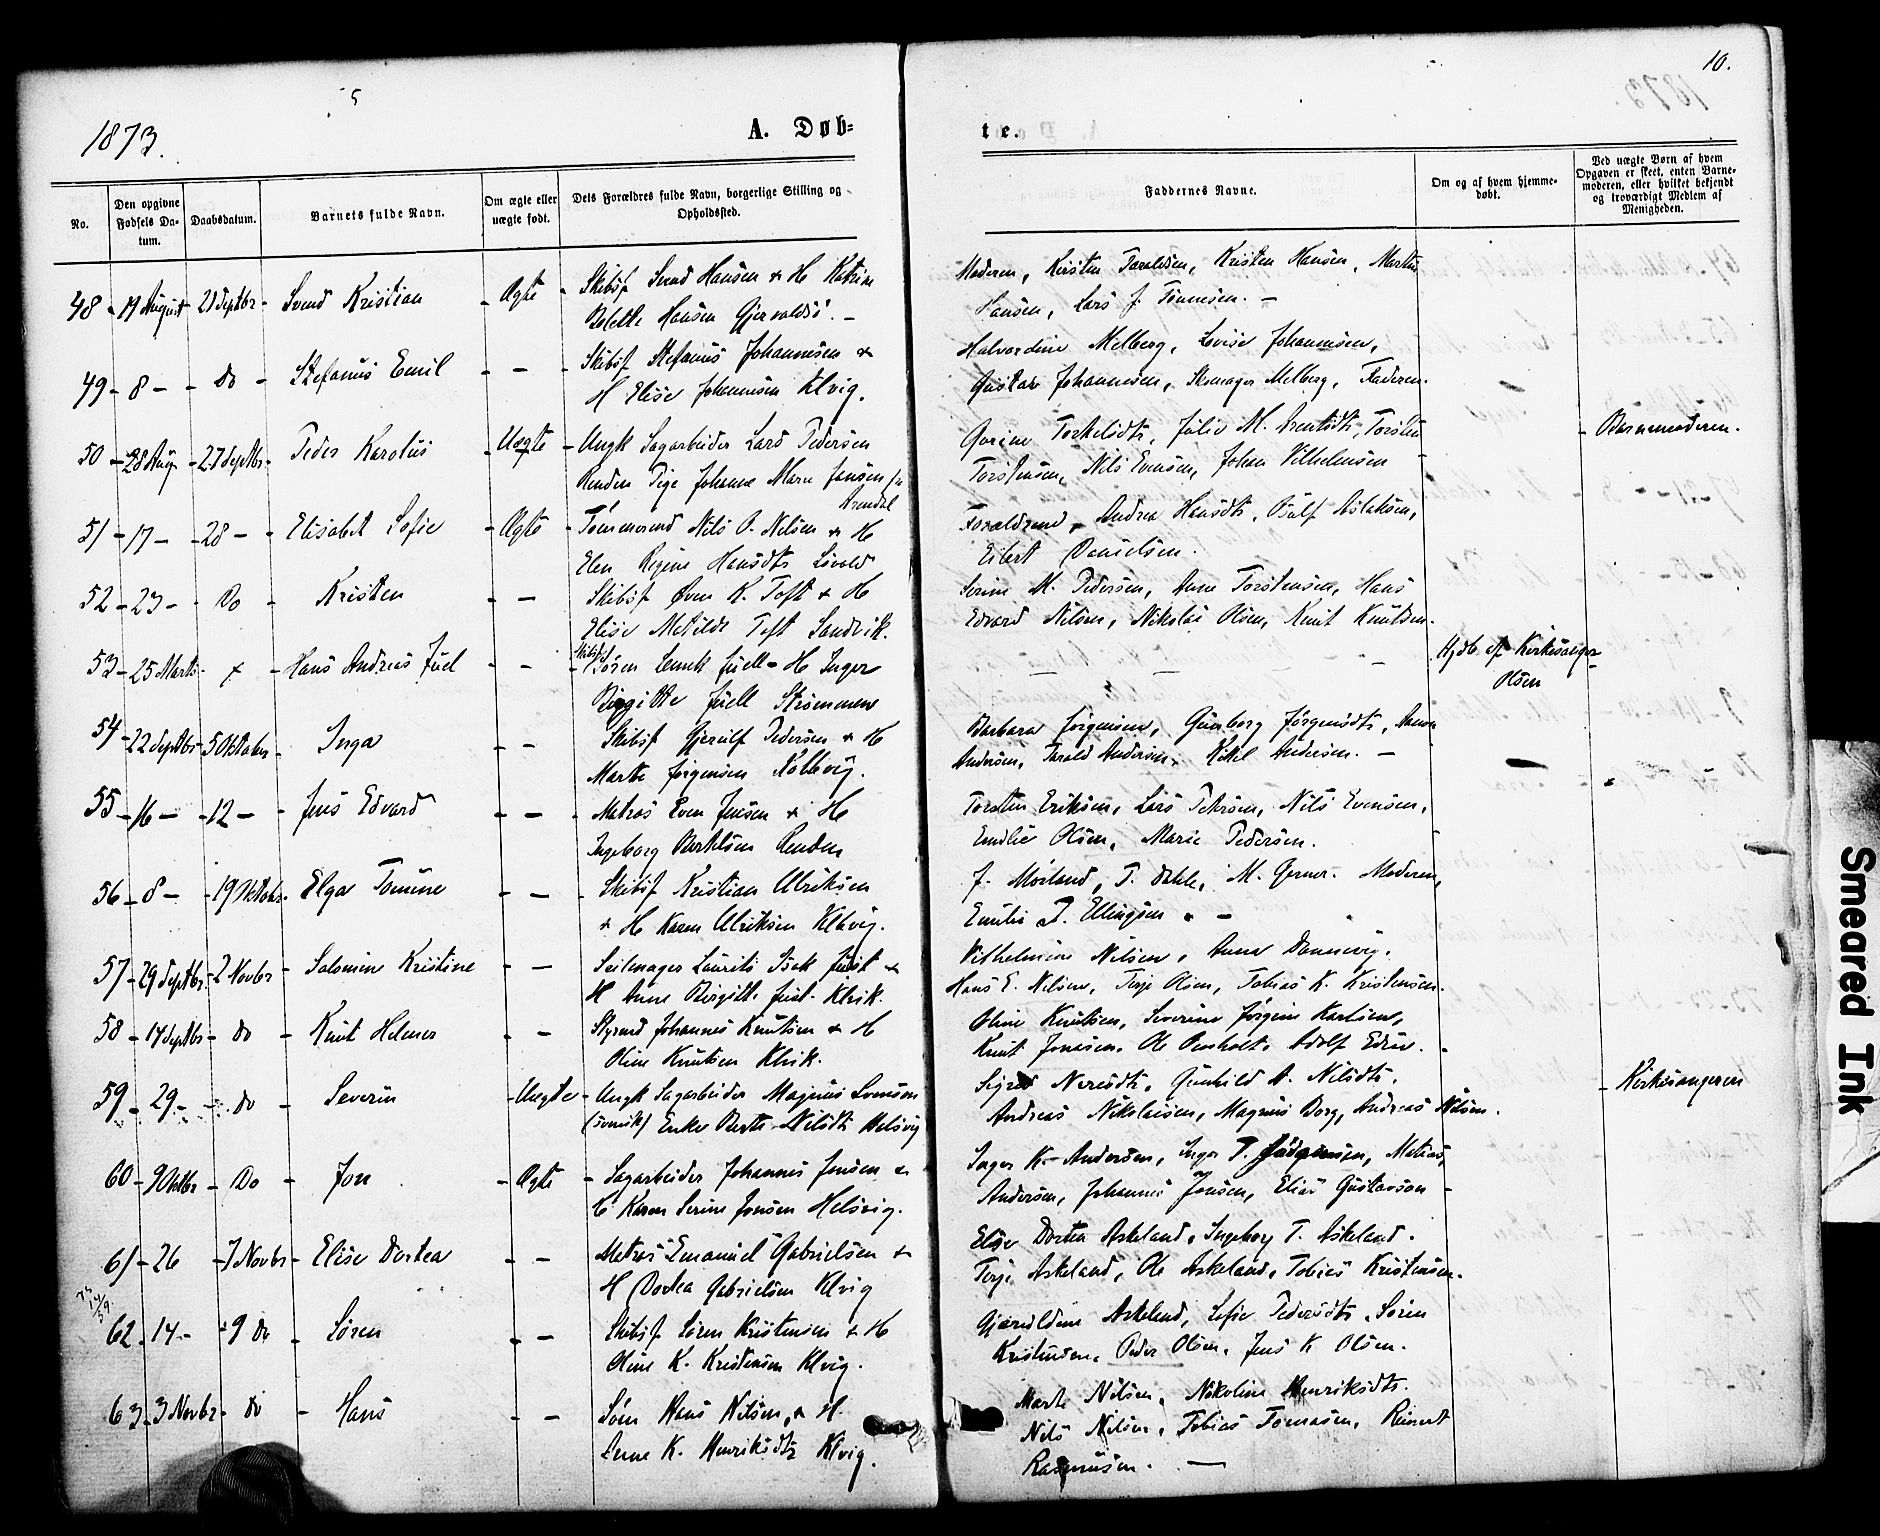 10.
1873.
A. Døb=
te.
No.
Den opgivne Fødsels Da-tum.
Daabsdatum.
Barnets fulde Navn.
Om ægte eller uægte født.
Dets Forældres fulde Navn, borgerlige Stilling og Opholdssted.
Faddernes Navne.
Om og af hvem hjemme-døbt.
Ved uægte Børn af hvem Opgaven er skeet, enten Barne-moderen, eller hvilket bekjendt og troværdigt Medlem af Menigheden.
48 - 19 August - 21 Septbr - Svend Kristian - Ægte - Skibsf Svend Hansen & H Katrine
Bolette Hansen
Moderen, Kirsten Taraldsen, Kristen Hansen, Martin
Hansen, Lars J. Tönnesen. -
49 - 8 - - Do - Stefanus Emil - - - Skibsf Stefanus Johannesen &
H Elise Johannesen Klvig.
Halvordine Melberg, Lovise Johannesen,
Gustav Johannesen, Skomager Melberg, Faderen.
50 - 28 Aug - 27 Septbr - Peder Karolus - Uægte - Ungk Sagarbeider Lars Pedersen
Renden Pige Johanne Marie Jansen
Arendal
Gurine Torkelsdtr, Julie M. Arentsdtr, Torsten
Torstensen, Nils Evensen, Johan Vilhelmsen
Barnemoderen.
51 - 17 - - 28 - - Elisabet Sofie - Ægte - Tömmermd Nils O. Nilsen & H
Elen Regine Hansdtr
Forældrene, Andrea Hansdtr, Aslaksen,
Eilert Danielsen.
52 - 23 - - Do - Kristen - - - Skibsf Even K. Toft & H
Elise Matilde Toft Sandvik.
Serine M. Pedersen, Anne Torstensen, Hans
Edvard Nilsen, Nikolai Olsen, Knut Knutsen.
53 - 25 Marts - + - Hans Andreas Juel - - - Skibsf Sören Juell - H Inger
Birgitte Juell Strömmene
Hjdb af Kirkesanger
Olsen
54 - 22 Septbr - 5 Oktober - Inga - - - Skibsf Gjerulf Pedersen & H
Marte Jörgensen Kolbvig.
Barbara Jörgensen, Gunborg Jörgensdtr, Anna
Andersen, Tarald Andersen, Kittel Andersen. -
55 - 16 - - 12 - - Jens Edvard - - - Matros Even Jensen & H
Ingeborg Bertelsen Renden
Torsten Eriksen, Lars Pedersen, Nils Evensen,
Emilie Olsen, Marie Pedersen.
56 - 8 - - 19 Oktober - Elga Tomine - - - Skibsf Kristian Ulriksen
& H Karen Ulriksen Klbvig.
J. Mörland, T. Dahle, M. Gerner. Moderen,
Emilie T. Ellingsen. -
57 - 29 Septbr - 2 Novbr - Salomine Kristine - - - Seilmager Laurits Isak Juist &
H Anne Birgitte Juist. Klvik.
Vilhelmine Nilsen, Anna Dannevig.
Hans E. Nilsen, Terje Olsen, Tobias K. Kristensen.
58 - 14 Septbr - Do - Knut Helmer - - - Styrmd Johannes Knutsen & H
Oline Knutsen Klvik.
Oline Knutsen, Severine Jörgine Karlsen,
Knut Jonasen, Ole Benholt, Adolf
59 - 29 - - Do - Severin - Uægte - Ungk Sagarbeider Magnus Svenson
(svensk) Enke Berte Nilsdtr Helsvig
Sigrid Gunhild A. Nilsdtr.
Andreas Nikolaisen, Magnus Borg, Andreas Nilsen.
Kirkesangeren
60 - 9 Oktbr - Do - Jon - Ægte - Sagarbeider Johannes Jensen &
H Karen Serine Jonsen Helsvig.
Inger K. Andersen, Inger T. Jörgensen, Matias
Andersen, Johannes Jonsen, Elias Gustavson -
61 - 26 - 7 Novbr - Elise Dortea - - - Matros Emanuel Gabrielsen &
H Dortea Gabrielsen Klvig
Elise Dortea Askeland, Ingeborg T. Askeland.
Terje Askeland, Ole Askeland, Tobias Kristensen.
62 - 14 - - 9 Do - Sören - - - Skibsf Sören Kristensen & H
Oline K. Kristensen Klvig.
Gjeruldine Askeland, Sofie Pedersdtr, Sören
Kristensen, Peder Olsen, Jens K Olsen.
63 - 3 Novbr - Do - Hans - - - Söm Hans Nilsen, & H.
Anne K. Henriksdtr Klvig.
Marte Nilsen, Nikoline Henriksdtr.
Nils Nilsen, Tobias Tomasen, Reinert
Rasmusen. -
Smeared Ink